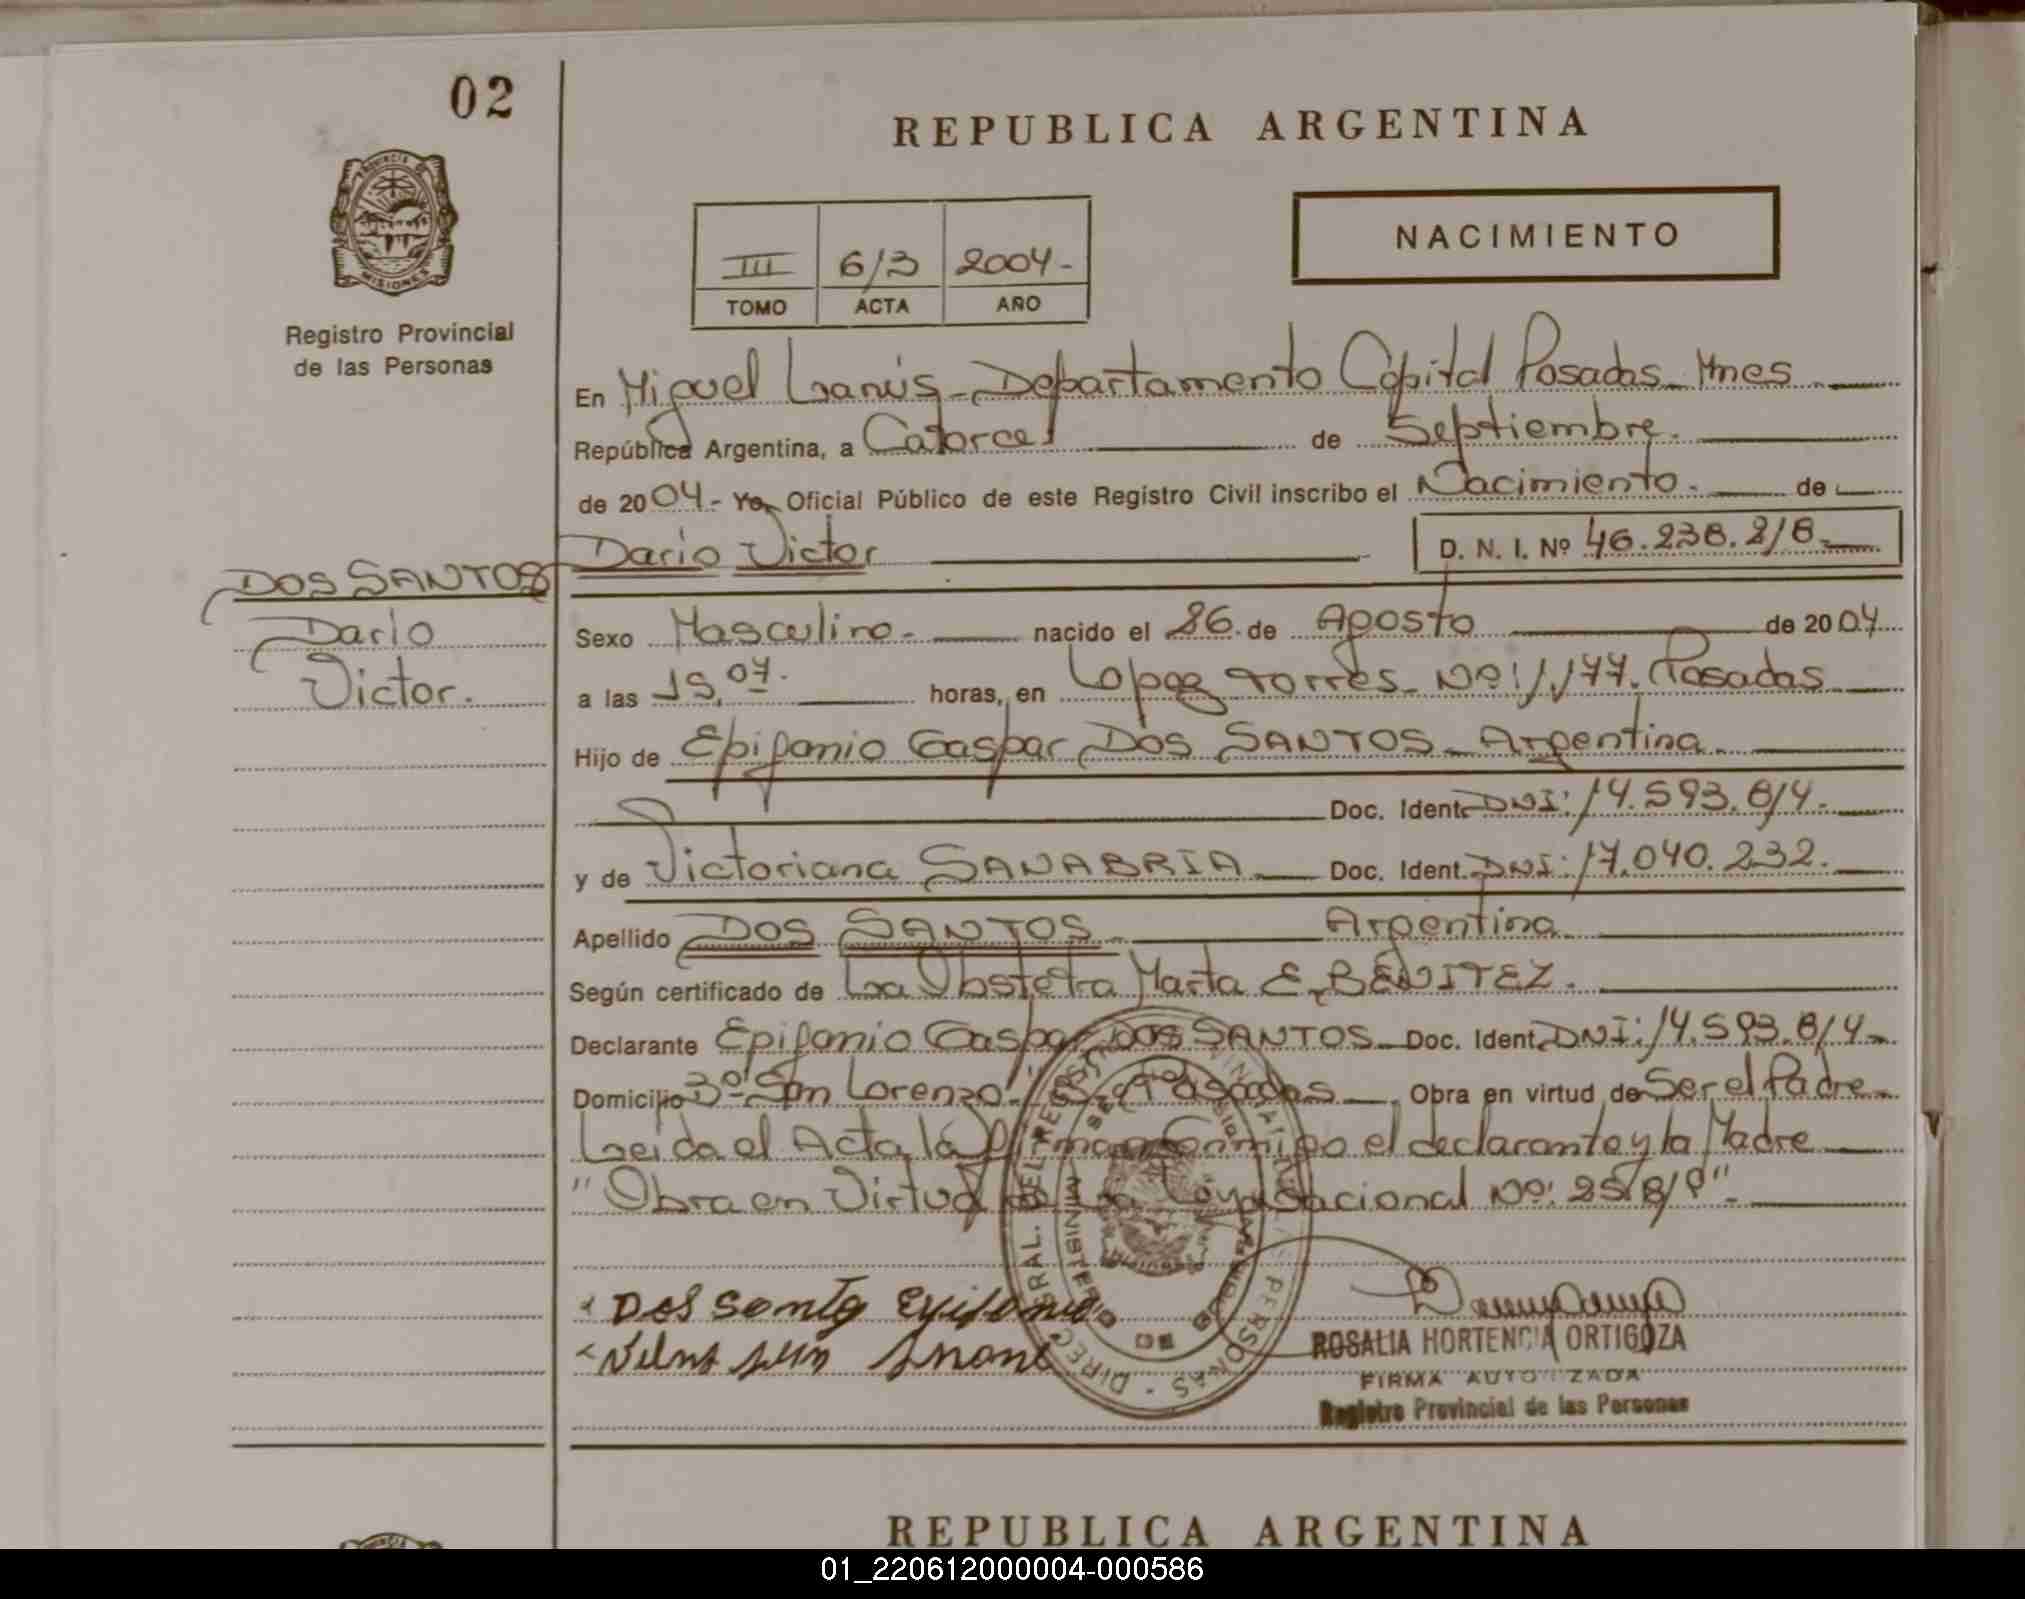 02
REPUBLICA ARGENTINA
PROVINCIA DE
MISIONES
NACIMIENTO
III 6/3 2004-
TOMO ACTA AÑO
Registro Provincial
de las Personas
En Miguel Lanús - Departamento Capital Posadas - Mnes
República Argentina, a Catorce de Septiembre.
de 2004 - Yo, Oficial Público de este Registro Civil inscribo el Nacimiento. de
Dario Victor D. N. I. Nº 46.238.218
DOS SANTOS
Dario
Victor.
Sexo Masculino. nacido el 26 de Agosto de 2004
a las 15,07. horas, en Lopez Torres - Nº: 1,177. Posadas
Hijo de Epifanio Gaspar DOS SANTOS - Argentina
Doc. Ident. DNI: 14.593.814.
y de Victoriana SANABRIA Doc. Ident. DNI: 17.040.232.
Apellido DOS SANTOS Argentina
Según certificado de La Obstetra Marta E. BENITEZ.
Declarante Epifanio Gaspar DOS SANTOS - Doc. Ident. DNI: 14.593.814-
Domicilio Bº San Lorenzo Posadas Obra en virtud de Ser el Padre
Leida el Acta la Firman Conmigo el declarante y la Madre
"Obra en Virtud de La Ley Nacional Nº: 25.819"-
ROSALIA HORTENCIA ORTIGOZA
FIRMA AUTORIZADA
Registro Provincial de las Personas
REPUBLICA ARGENTINA
01_220612000004-000586